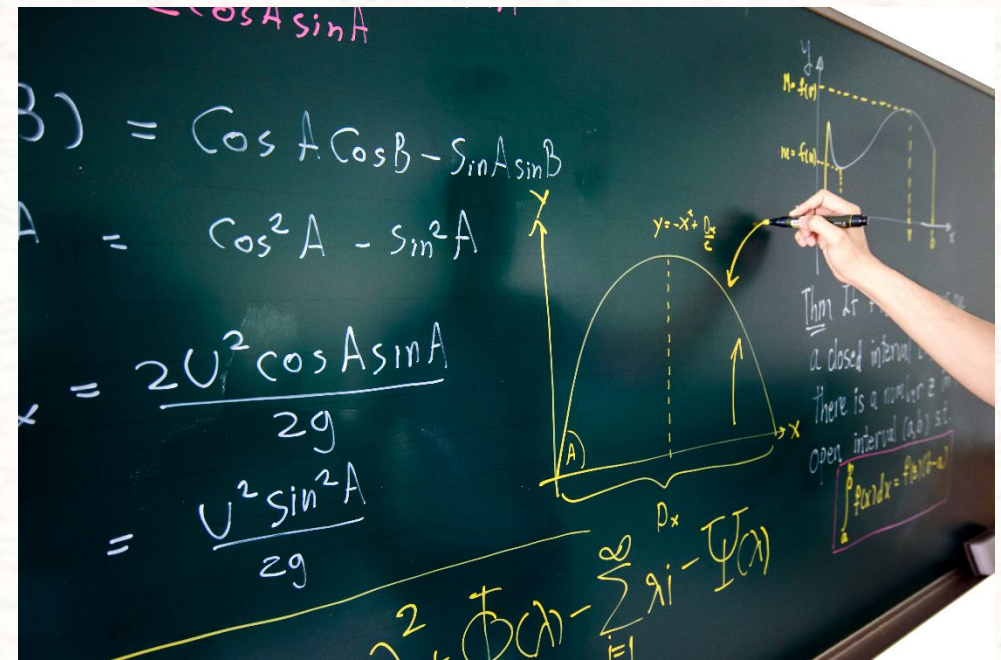 CosA sinA
B) = CosA CosB - SinA sinB
A = Cos²A - Sin²A
x = 2U² cosA sinA / 2g
= U² sin²A / 2g
Y
y = -x² +
A
X
Dx
² + Φ(λ) - ∑ i=1 ∞ λi - Ψ(λ)
y
M = f(
m = f(
x
Thm If
a closed interval
there is a number z in
open interval (a,b) s.t.
∫ a b f(x)dx = f(z)(b-a)